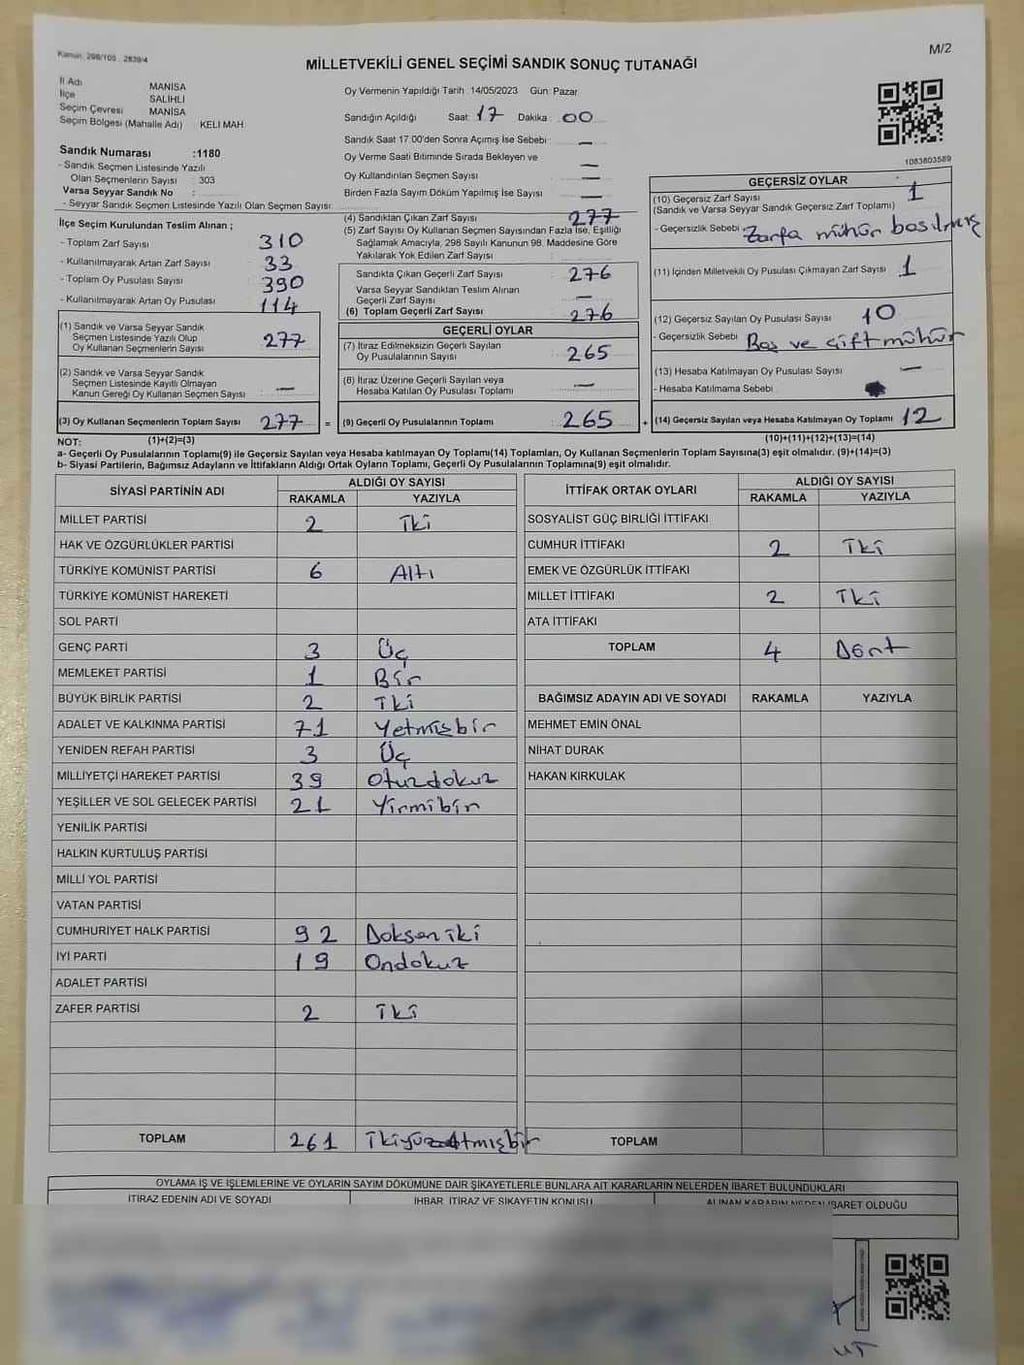 Kanun: 298/105 2839/4
M/2
MİLLETVEKİLİ GENEL SEÇİMİ SANDIK SONUÇ TUTANAĞI
İl Adı MANİSA
İlçe SALİHLİ
Seçim Çevresi MANİSA
Seçim Bölgesi (Mahalle Adı) KELİ MAH.
Oy Vermenin Yapıldığı Tarih :14/05/2023 Gün: Pazar
Sandığın Açıldığı Saat: 17 Dakika: 00
Sandık Saat 17:00'den Sonra Açımış İse Sebebi: —
Oy Verme Saati Bitiminde Sırada Bekleyen ve —
Oy Kullandırılan Seçmen Sayısı —
Birden Fazla Sayım Döküm Yapılmış İse Sayısı —
1083803589
Sandık Numarası :1180
- Sandık Seçmen Listesinde Yazılı
Olan Seçmenlerin Sayısı : 303
Varsa Seyyar Sandık No :
- Seyyar Sandık Seçmen Listesinde Yazılı Olan Seçmen Sayısı:
İlçe Seçim Kurulundan Teslim Alınan ;
- Toplam Zarf Sayısı 310
- Kullanılmayarak Artan Zarf Sayısı 33
- Toplam Oy Pusulası Sayısı 390
- Kullanılmayarak Artan Oy Pusulası 114
(1) Sandık ve Varsa Seyyar Sandık
Seçmen Listesinde Yazılı Olup
Oy Kullanan Seçmenlerin Sayısı 277
(2) Sandık ve Varsa Seyyar Sandık
Seçmen Listesinde Kayıtlı Olmayan
Kanun Gereği Oy Kullanan Seçmen Sayısı —
(3) Oy Kullanan Seçmenlerin Toplam Sayısı 277 =
(1)+(2)=(3)
(4) Sandıktan Çıkan Zarf Sayısı 277
(5) Zarf Sayısı Oy Kullanan Seçmen Sayısından Fazla İse, Eşitliği
Sağlamak Amacıyla, 298 Sayılı Kanunun 98. Maddesine Göre
Yakılarak Yok Edilen Zarf Sayısı :
Sandıkta Çıkan Geçerli Zarf Sayısı 276
Varsa Seyyar Sandıktan Teslim Alınan
Geçerli Zarf Sayısı —
(6) Toplam Geçerli Zarf Sayısı 276
GEÇERLİ OYLAR
(7) İtiraz Edilmeksizin Geçerli Sayılan
Oy Pusulalarının Sayısı 265
(8) İtiraz Üzerine Geçerli Sayılan veya
Hesaba Katılan Oy Pusulası Toplamı —
(9) Geçerli Oy Pusulalarının Toplamı 265 +
GEÇERSİZ OYLAR
(10) Geçersiz Zarf Sayısı 1
(Sandık ve Varsa Seyyar Sandık Geçersiz Zarf Toplamı)
- Geçersizlik Sebebi Zarfa mühür basılmış
(11) İçinden Milletvekili Oy Pusulası Çıkmayan Zarf Sayısı 1
(12) Geçersiz Sayılan Oy Pusulası Sayısı 10
- Geçersizlik Sebebi Boş ve çift mühür
(13) Hesaba Katılmayan Oy Pusulası Sayısı —
- Hesaba Katılmama Sebebi
(14) Geçersiz Sayılan veya Hesaba Katılmayan Oy Toplamı 12
(10)+(11)+(12)+(13)=(14)
NOT:
a- Geçerli Oy Pusulalarının Toplamı(9) ile Geçersiz Sayılan veya Hesaba katılmayan Oy Toplamı(14) Toplamları, Oy Kullanan Seçmenlerin Toplam Sayısına(3) eşit olmalıdır. (9)+(14)=(3)
b- Siyasi Partilerin, Bağımsız Adayların ve İttifakların Aldığı Ortak Oyların Toplamı, Geçerli Oy Pusulalarının Toplamına(9) eşit olmalıdır.
SİYASİ PARTİNİN ADI ALDIĞI OY SAYISI
RAKAMLA YAZIYLA
MİLLET PARTİSİ 2 İki
HAK VE ÖZGÜRLÜKLER PARTİSİ
TÜRKİYE KOMÜNİST PARTİSİ 6 Altı
TÜRKİYE KOMÜNİST HAREKETİ
SOL PARTİ
GENÇ PARTİ 3 Üç
MEMLEKET PARTİSİ 1 Bir
BÜYÜK BİRLİK PARTİSİ 2 İki
ADALET VE KALKINMA PARTİSİ 71 Yetmişbir
YENİDEN REFAH PARTİSİ 3 Üç
MİLLİYETÇİ HAREKET PARTİSİ 39 Otuzdokuz
YEŞİLLER VE SOL GELECEK PARTİSİ 21 Yirmibir
YENİLİK PARTİSİ
HALKIN KURTULUŞ PARTİSİ
MİLLİ YOL PARTİSİ
VATAN PARTİSİ
CUMHURİYET HALK PARTİSİ 92 Doksan iki
İYİ PARTİ 19 Ondokuz
ADALET PARTİSİ
ZAFER PARTİSİ 2 İki
TOPLAM 261 İkiyüzaltmışbir
İTTİFAK ORTAK OYLARI ALDIĞI OY SAYISI
RAKAMLA YAZIYLA
SOSYALİST GÜÇ BİRLİĞİ İTTİFAKI
CUMHUR İTTİFAKI 2 İki
EMEK VE ÖZGÜRLÜK İTTİFAKI
MİLLET İTTİFAKI 2 İki
ATA İTTİFAKI
TOPLAM 4 Dört
BAĞIMSIZ ADAYIN ADI VE SOYADI RAKAMLA YAZIYLA
MEHMET EMİN ÖNAL
NİHAT DURAK
HAKAN KIRKULAK
TOPLAM
OYLAMA İŞ VE İŞLEMLERİNE VE OYLARIN SAYIM DÖKÜMÜNE DAİR ŞİKAYETLERLE BUNLARA AİT KARARLARIN NELERDEN İBARET BULUNDUKLARI
İTİRAZ EDENİN ADI VE SOYADI İHBAR, İTİRAZ VE ŞİKAYETİN KONUSU ALINAN KARARIN NEDEN İBARET OLDUĞU